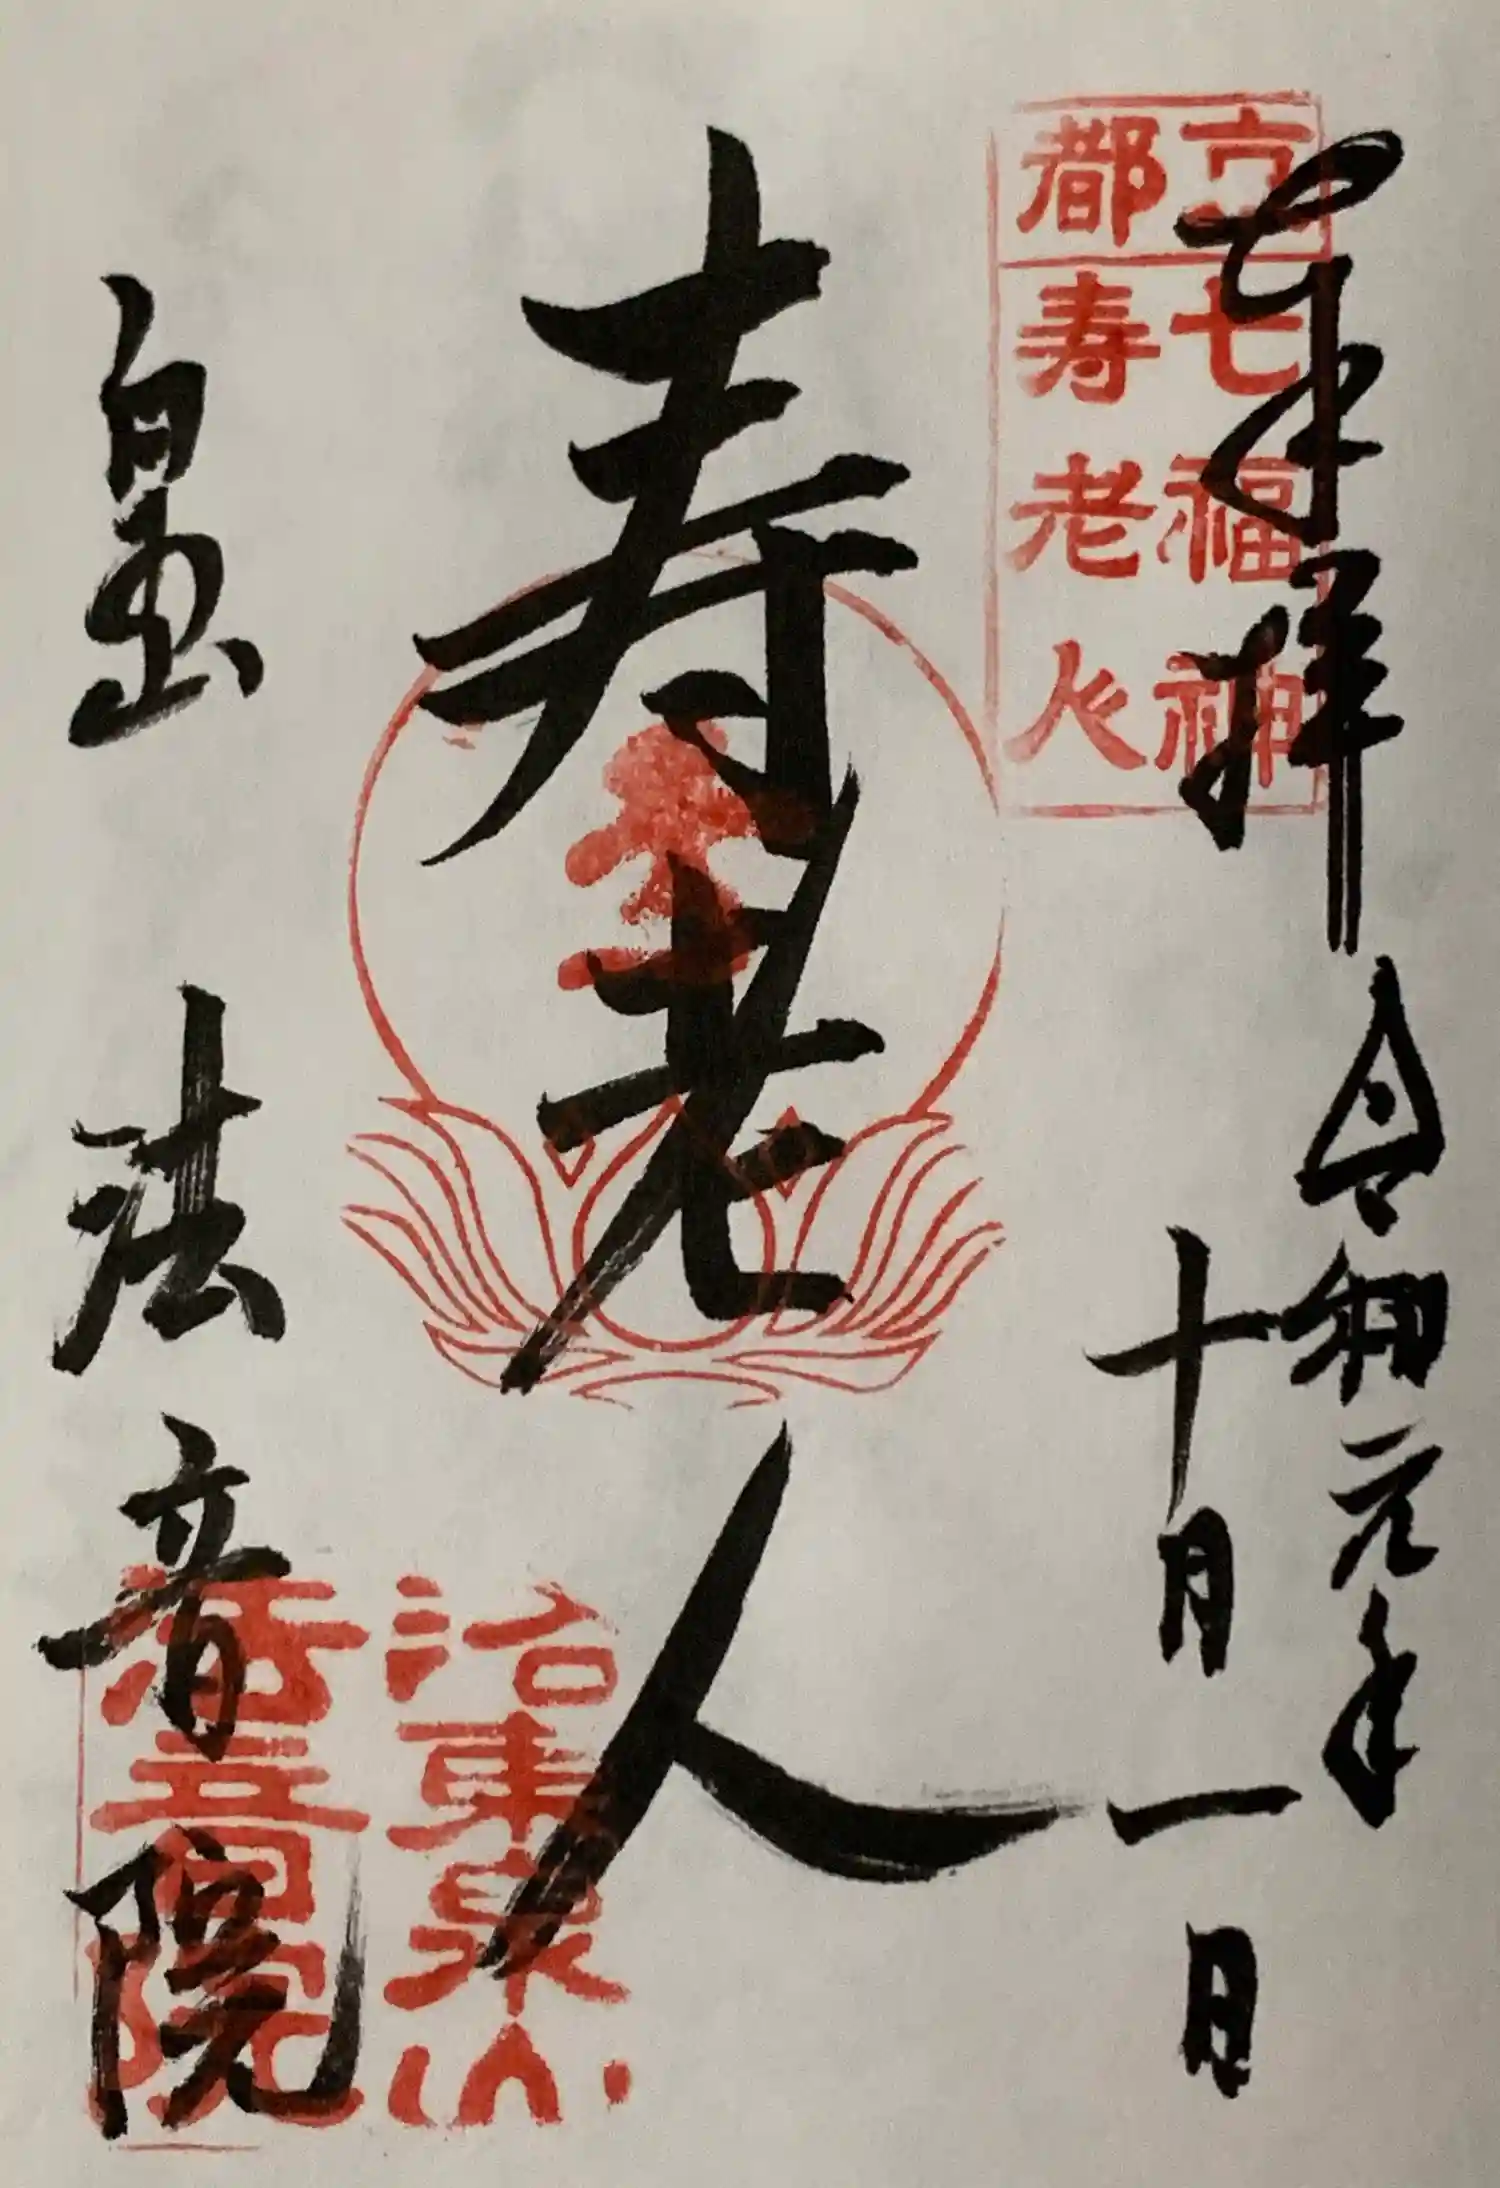 奉拝
令和元年
十月一日
京都
七福神
寿老人
寿老人
泉山
法音院
洛東泉山
法音院